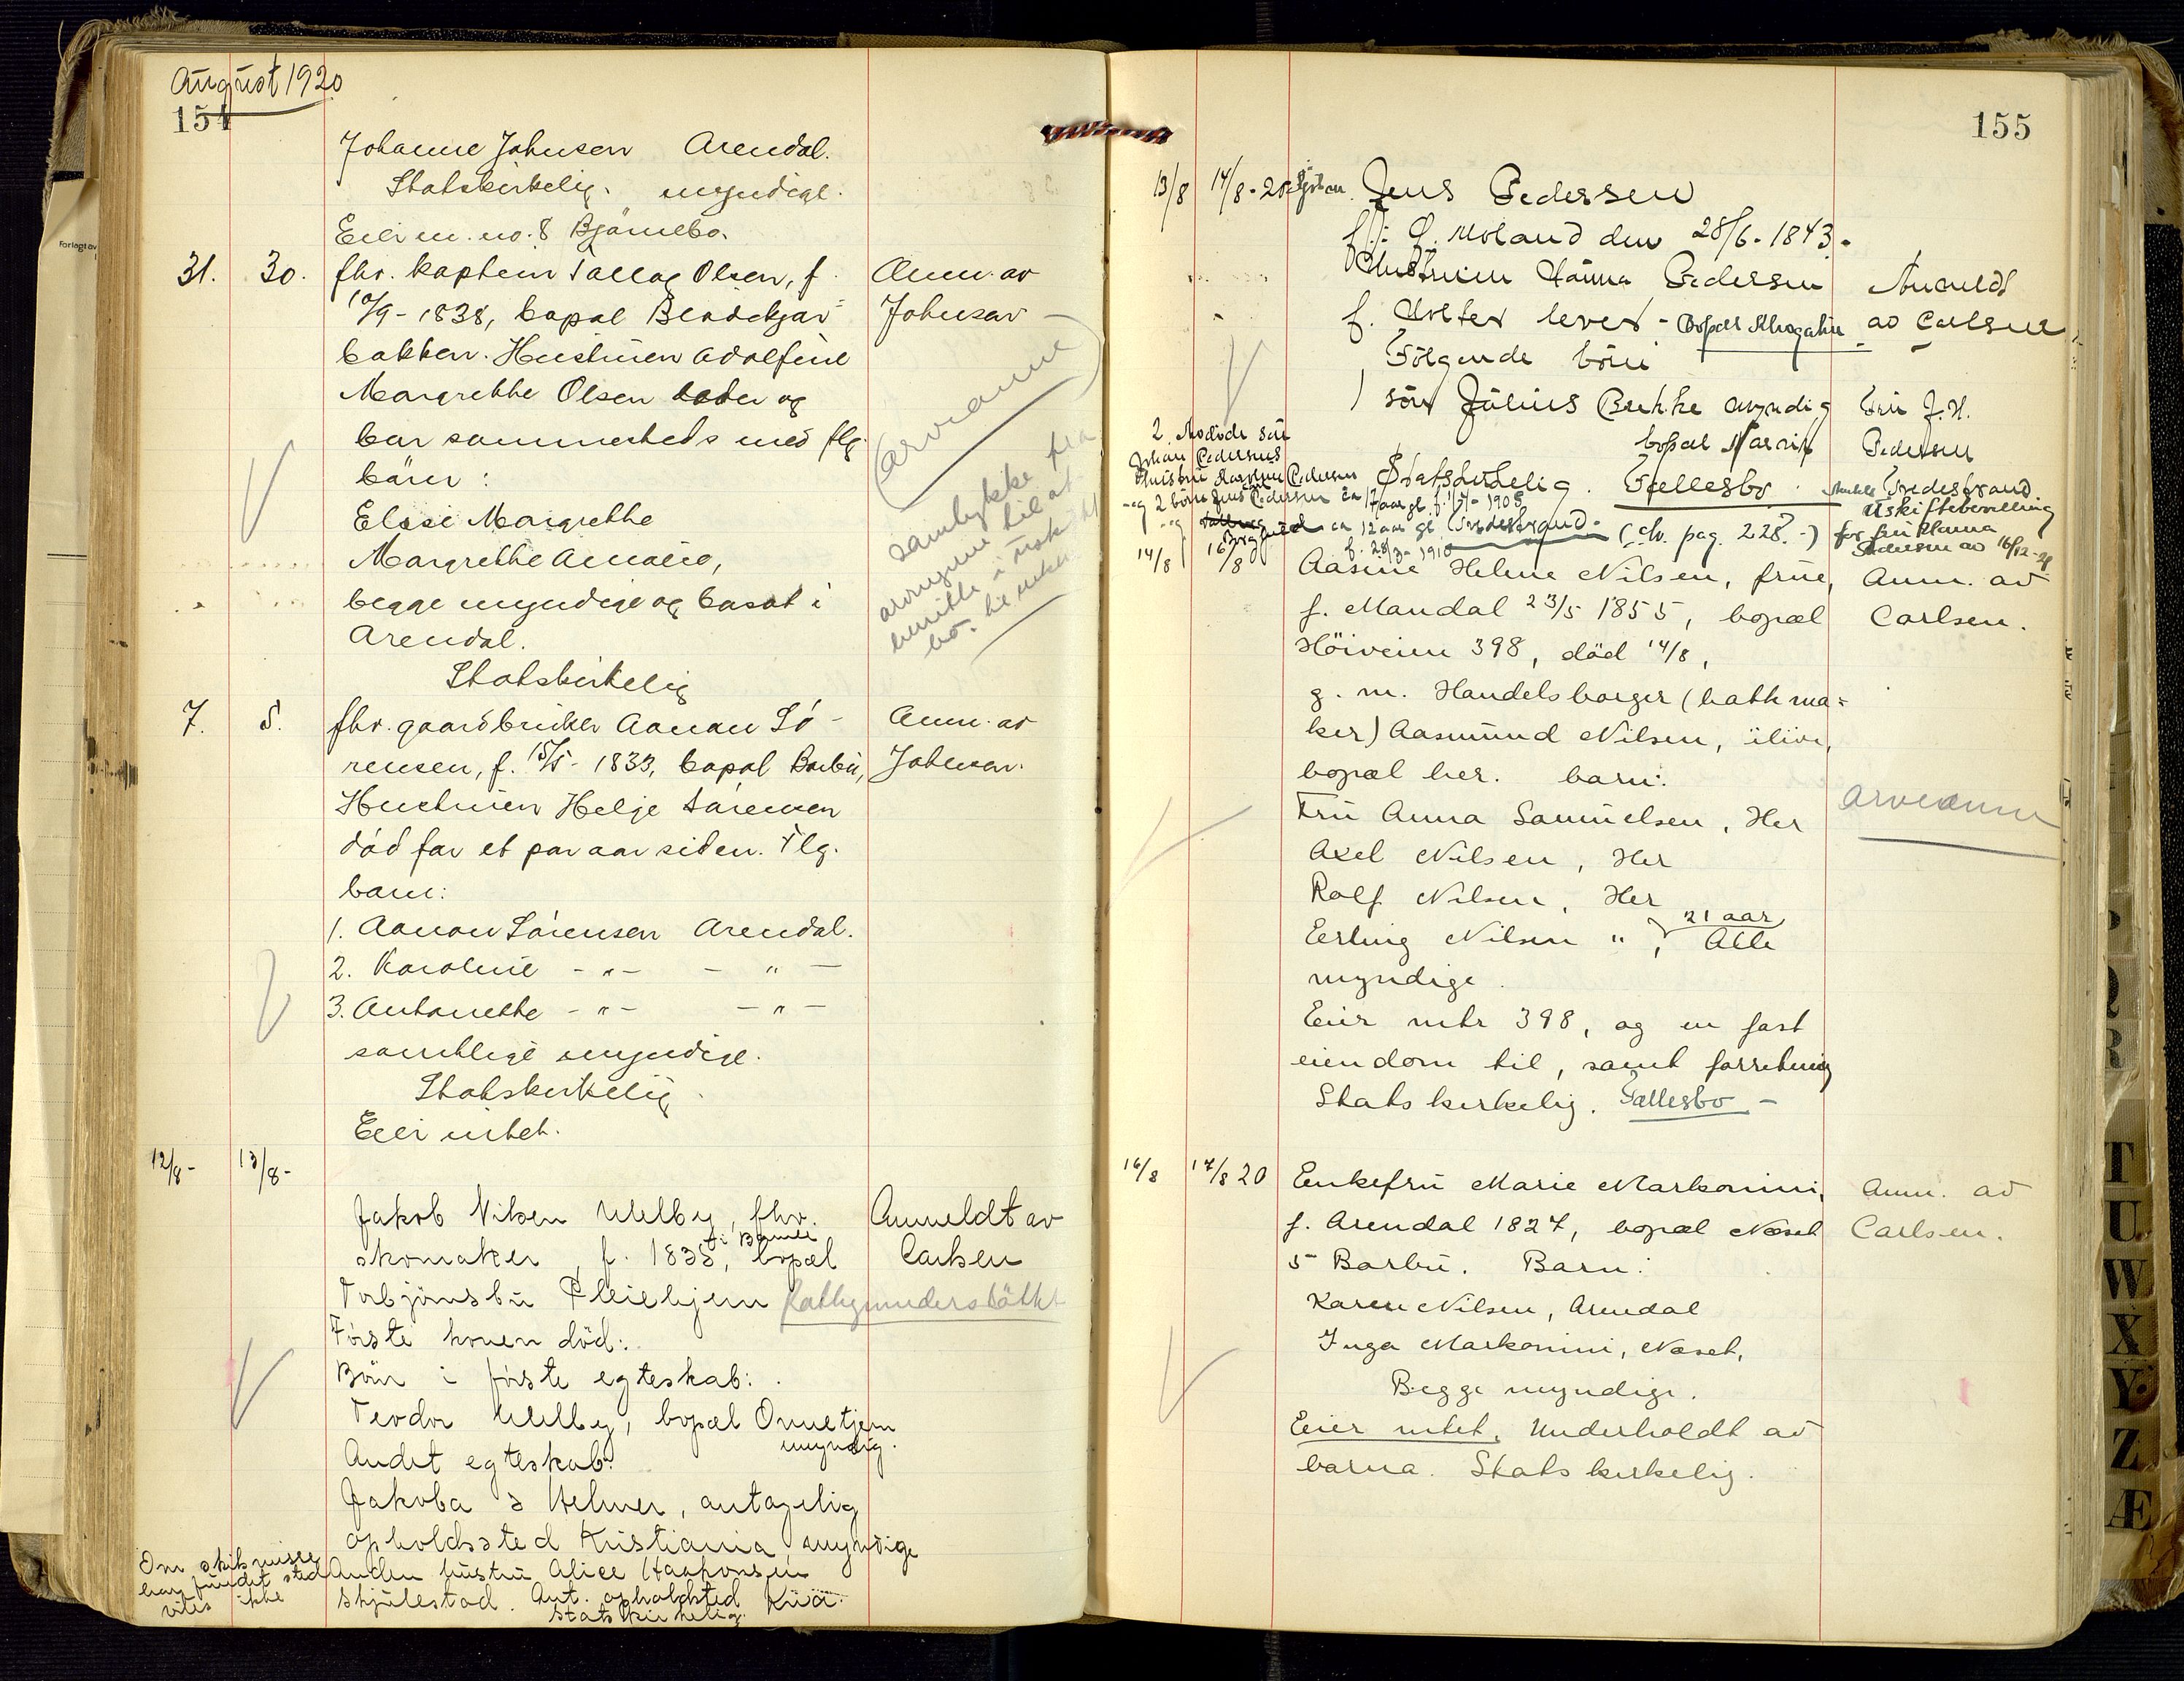 August 1920
154
Johanne Johnsen Arendal.
Statskirkelig. myndige.
Eier m. no. 8 Bjørnebo.
31. 30. fhv. kaptein Tallag Olsen, f. Anm. av
10/9 - 1838, bopæl Blødekjær Johnsen
bakken. Hustruen Adolfine
Margrethe Olsen lever og
bor sammesteds med flg.
børn:
Elise Margrethe
Margrethe Amalie,
begge myndige og bosat i
Arendal.
Statskirkelig
(arveanm)
samtykke fra
arvingene til at
hensitte i uskiftet
bo.
7. 5. fhv. gaardbruker Aanon Sø- Anm. av
rensen, f. 15/5 - 1833, bopæl Barbu, Johnsen.
Hustruen Helje Sørensen
død for et par aar siden. Flg.
barn:
1. Aanon Sørensen Arendal.
2. Karoline - " - - " -
3. Antonette - " - - " -
samtlige myndige.
Statskirkelig.
Eier intet.
12/8- 13/8-
Jakob Nilsen Welby, fhv. Anmeldt av
skomaker, f. 1835, i Bamle bopæl Carlsen
Torbjønsbu Pleiehjem Fattigunderstøttet
Første konen død:
Børn i første egteskab:
Teodor Welby, bopæl Omnetjern
myndig.
Andet egteskab:
Jakoba & Helmer, antagelig
opholdssted Kristiania, myndige
Anden hustru Alice Haakonsen
Skjulestad. Ant. opholdsted Kr.a.
Statskirkelig.
Om skilsmisse
har fundet sted
vites ikke
155
13/8 14/8-20 Jens Pedersen
f. i Ø. Moland den 28/6 - 1843.
Hustruen Hanna Pedersen Anmeldt
f. Holter lever - av Carlsen
Følgende børn
1 søn Julius Bukke myndig Fru J. H.
bopæl Narvik Pedersen
Statskirkelig. Fællesbo. Tvedestrand.
2. Avdøde søn
Johan Pedersens
Hustru Pedersen
og 2 børn Jens Pedersen ca 17 aar gl. f. 1908
og ca 12 aar gl. Tvedestrand.
f. 28/3 - 1910
(chv. pag. 228.-)
Uskiftebevilling
for fru Hanna
Pedersen av 16/12-20
14/8 16/8 Aasine Helene Nilsen, frue, Anm. av
f. Mandal 23/5 1855, bopæl Carlsen.
Höiveien 398, död 14/8,
g. m. Handelsborger (hattma=
ker) Aasmund Nilsen, ilive,
bopæl her. barn:
Fru Anna Samuelsen, Her
Axel Nilsen, Her
Rolf Nilsen, Her
Erling Nilsen ", 21 aar Alle
myndige.
Eier mtr 398, og en fast
eiendom til, samt forretning
Statskirkelig. Fællesbo -
arveanm
16/8 17/8 20 Enkefru Marie Markonini, Anm. av
f. Arendal 1827, bopæl Næset Carlsen.
5 Barbu. Barn:
Karen Nilsen, Arendal
Inga Markonini, Næset,
Begge myndige.
Eier intet. Underholdt av
barna. Statskirkelig.
T
U
W
X
Y
Z
Æ